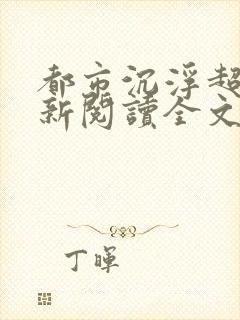 都市沉浮超
新閱讀全文
丁暉